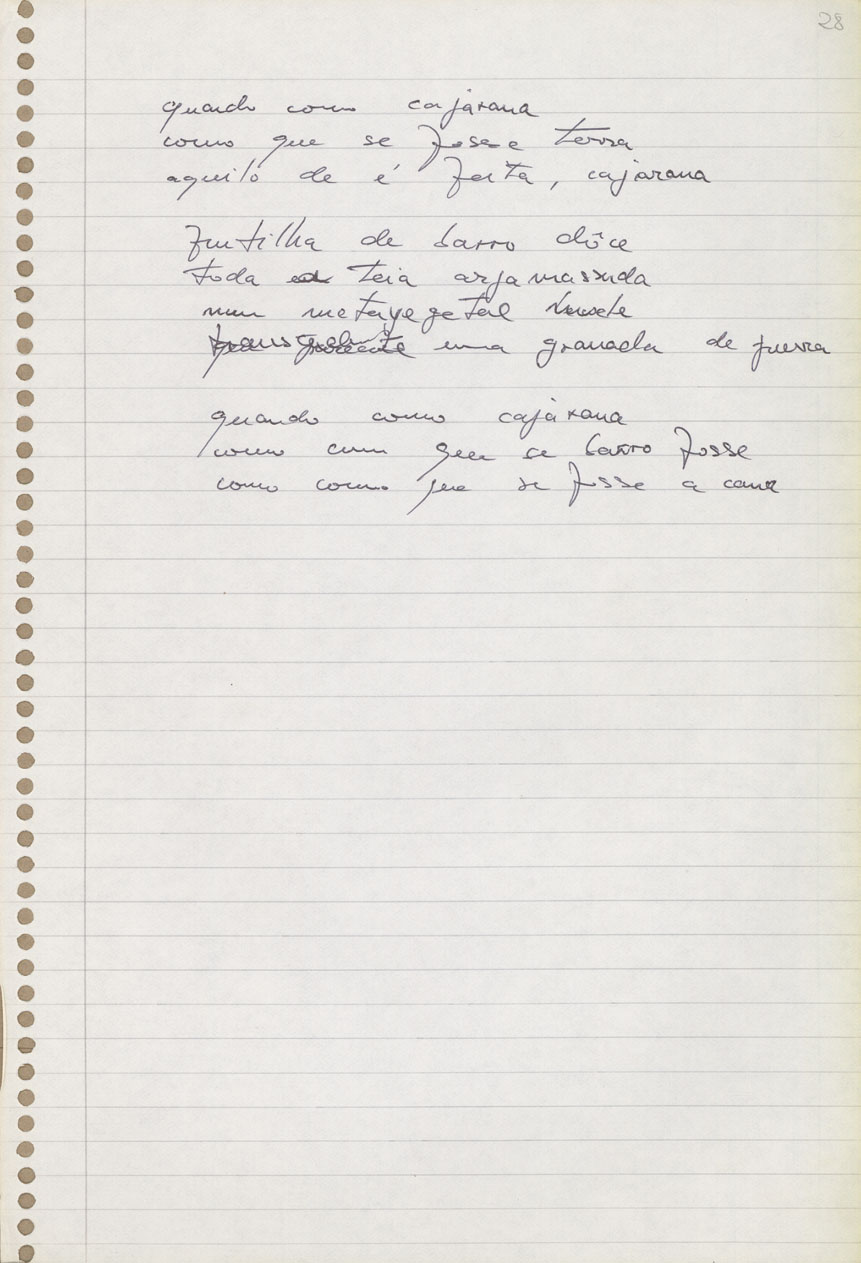 28
quando como cajarana
como que se fosse terra
aquilo de é feita, cajarana
frutilha de barro dôce
toda teia argamassada
num metavegetal
uma granada de guerra
quando como cajarana
como com que se barro fosse
como como que se fosse a cana